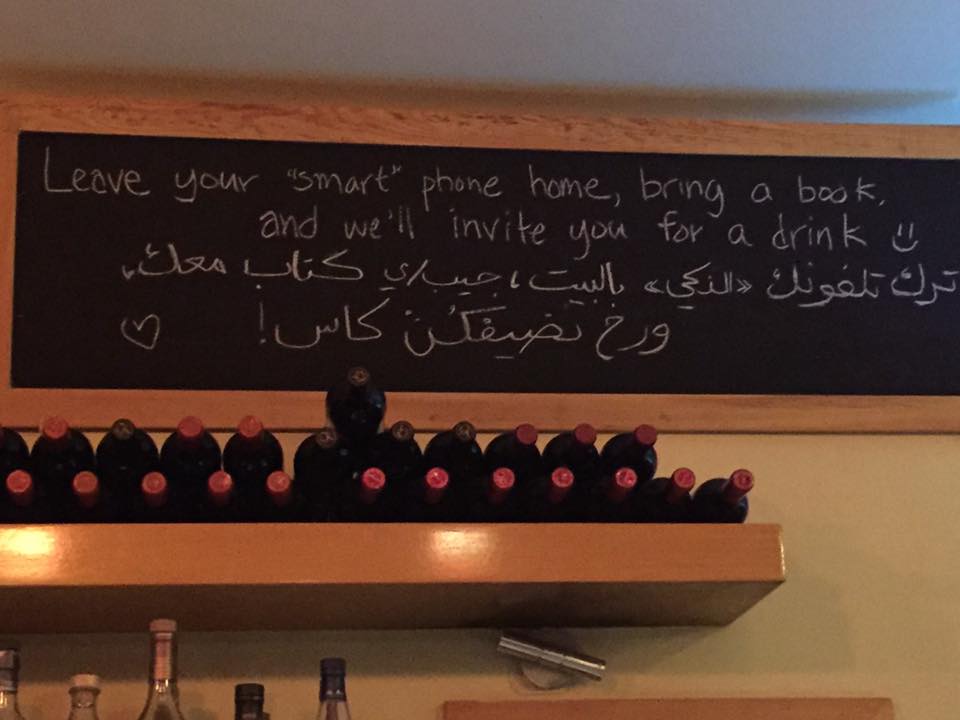 Leave your "smart" phone home, bring a book,
and we'll invite you for a drink
ترك تلفونك «الذكي» بالبيت، جيب/ي كتاب معك،
ورح نضيفكُن كاس!